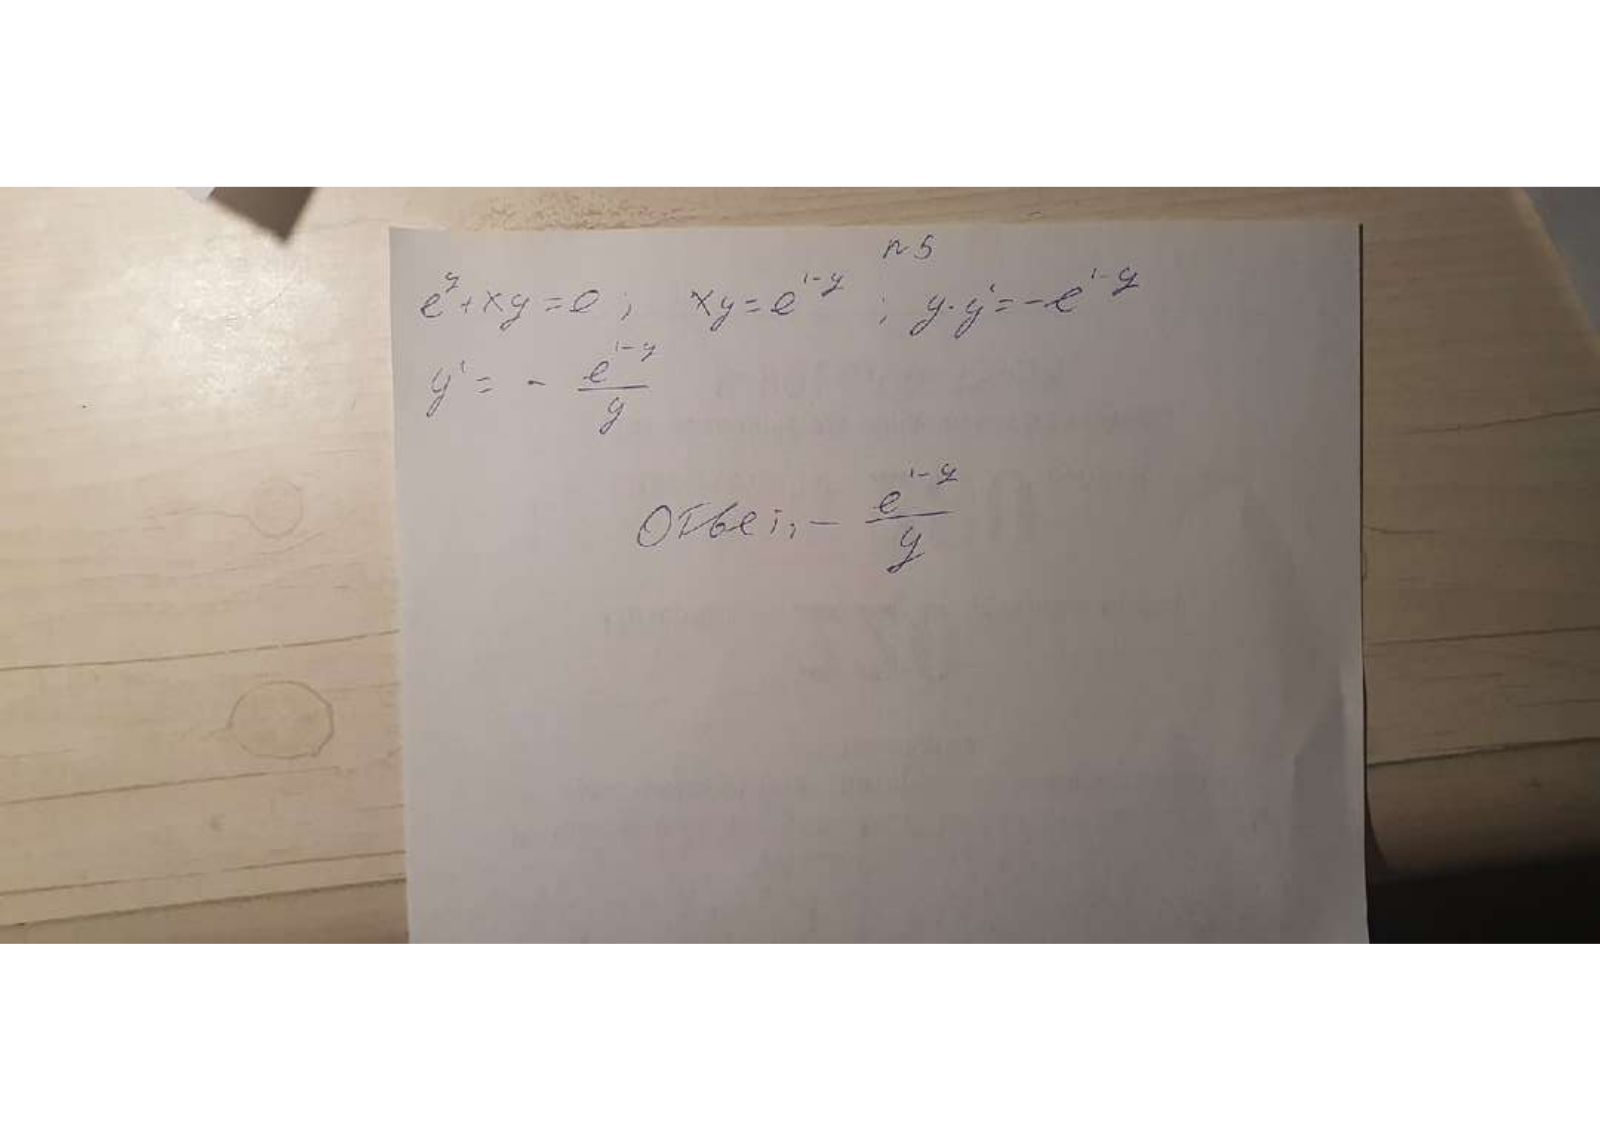 n5
e^y + xy = e ; xy = e^{1-y} ; y·y' = -e^{1-y}
y' = - \frac{e^{1-y}}{y}
Ответ, - \frac{e^{1-y}}{y}